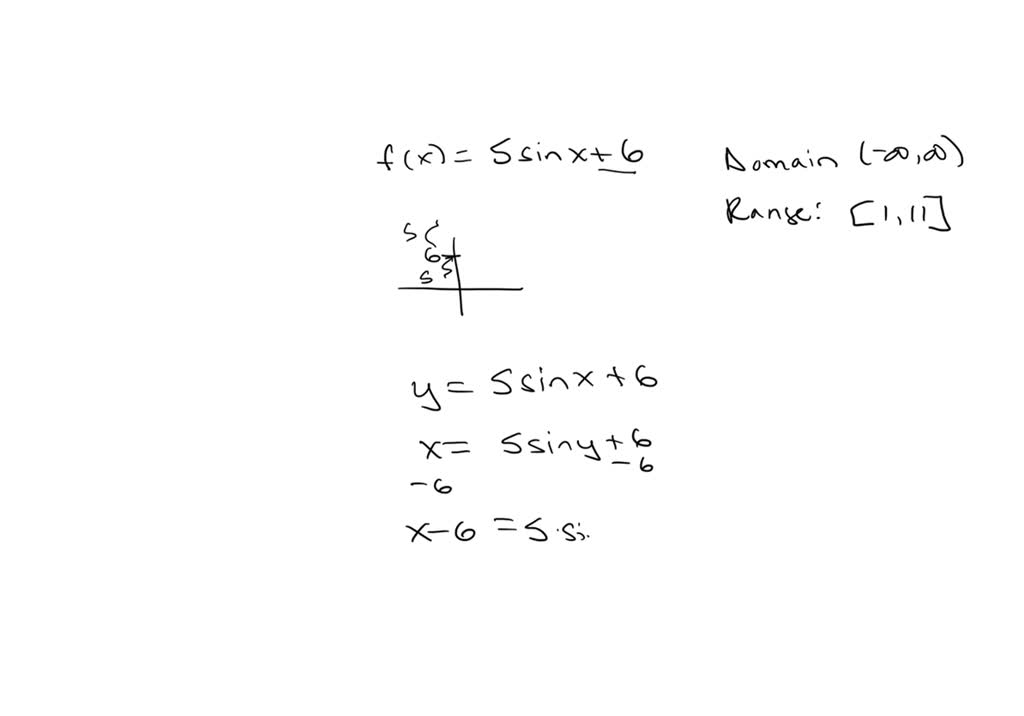 f(x) = 5 sin x + 6
Domain (-∞, ∞)
Range: [1, 11]
5
6
5 5
y = 5 sin x + 6
x = 5 sin y + 6
-6 -6
x - 6 = 5 · si